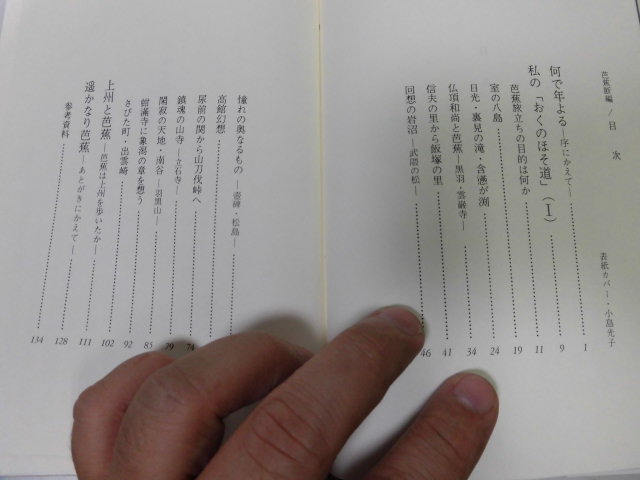 芭蕉断編／目 次
表紙カバー・小島光子
何で年よる―序にかえて― 1
私の「おくのほそ道」（Ⅰ） 9
芭蕉旅立ちの目的は何か 11
室の八島 19
日光・裏見の滝・含満が渕 24
仏頂和尚と芭蕉―黒羽・雲巌寺― 34
信夫の里から飯塚の里 41
回想の岩沼―武隈の松― 46
憧れの奥なるもの―壺碑・松島―
高館幻想
尿前の関から山刀伐峠へ 74
鎮魂の山寺―立石寺― 79
閑寂の天地・南谷―羽黒山― 85
蚶満寺に象潟の章を想う 92
さびた町・出雲崎 102
上州と芭蕉―芭蕉は上州を歩いたか― 111
遥かなり芭蕉―あとがきにかえて― 128
参考資料 134